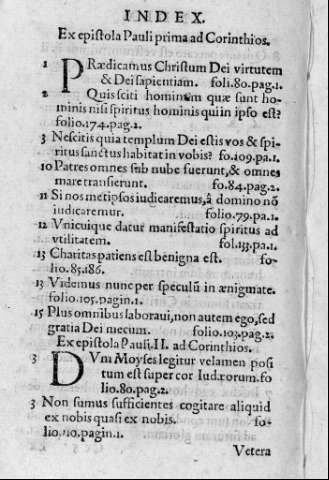 INDEX.
Ex epistola Pauli prima ad Corinthios.
1 PRædicamus Christum Dei virtutem
& Dei sapientiam. foli.80.pag.1.
2 Quis sciti hominum quæ sunt ho-
minis nisi spiritus hominis qui in ipso est?
folio.174.pag.2.
3 Nescitis quia templum Dei estis vos & spi-
ritus sanctus habitat in vobis? fo.109.pa.1.
10 Patres omnes sub nube fuerunt, & omnes
mare transierunt. fo.84.pag.2.
11 Si nos metipsos iudicaremus, â domino nõ
iudicaremur. folio.79.pa.1.
12 Vnicuique datur manifestatio spiritus ad
vtilitatem. fol.133.pa.1.
13 Charitas patiens est benigna est. fo-
lio.85.186.
13 Videmus nunc per speculũ in ænigmate.
folio.105.pagin.1.
15 Plus omnibus laboraui, non autem ego, sed
gratia Dei mecum. folio.103.pag.2.
Ex epistola Pauli.II. ad Corinthios.
3 DVm Moyses legitur velamen posi
tum est super cor Iudæorum.fo
lio.80.pag.2.
3 Non sumus sufficientes cogitare aliquid
ex nobis quasi ex nobis. fo-
lio.110.pagin.1.
Vetera